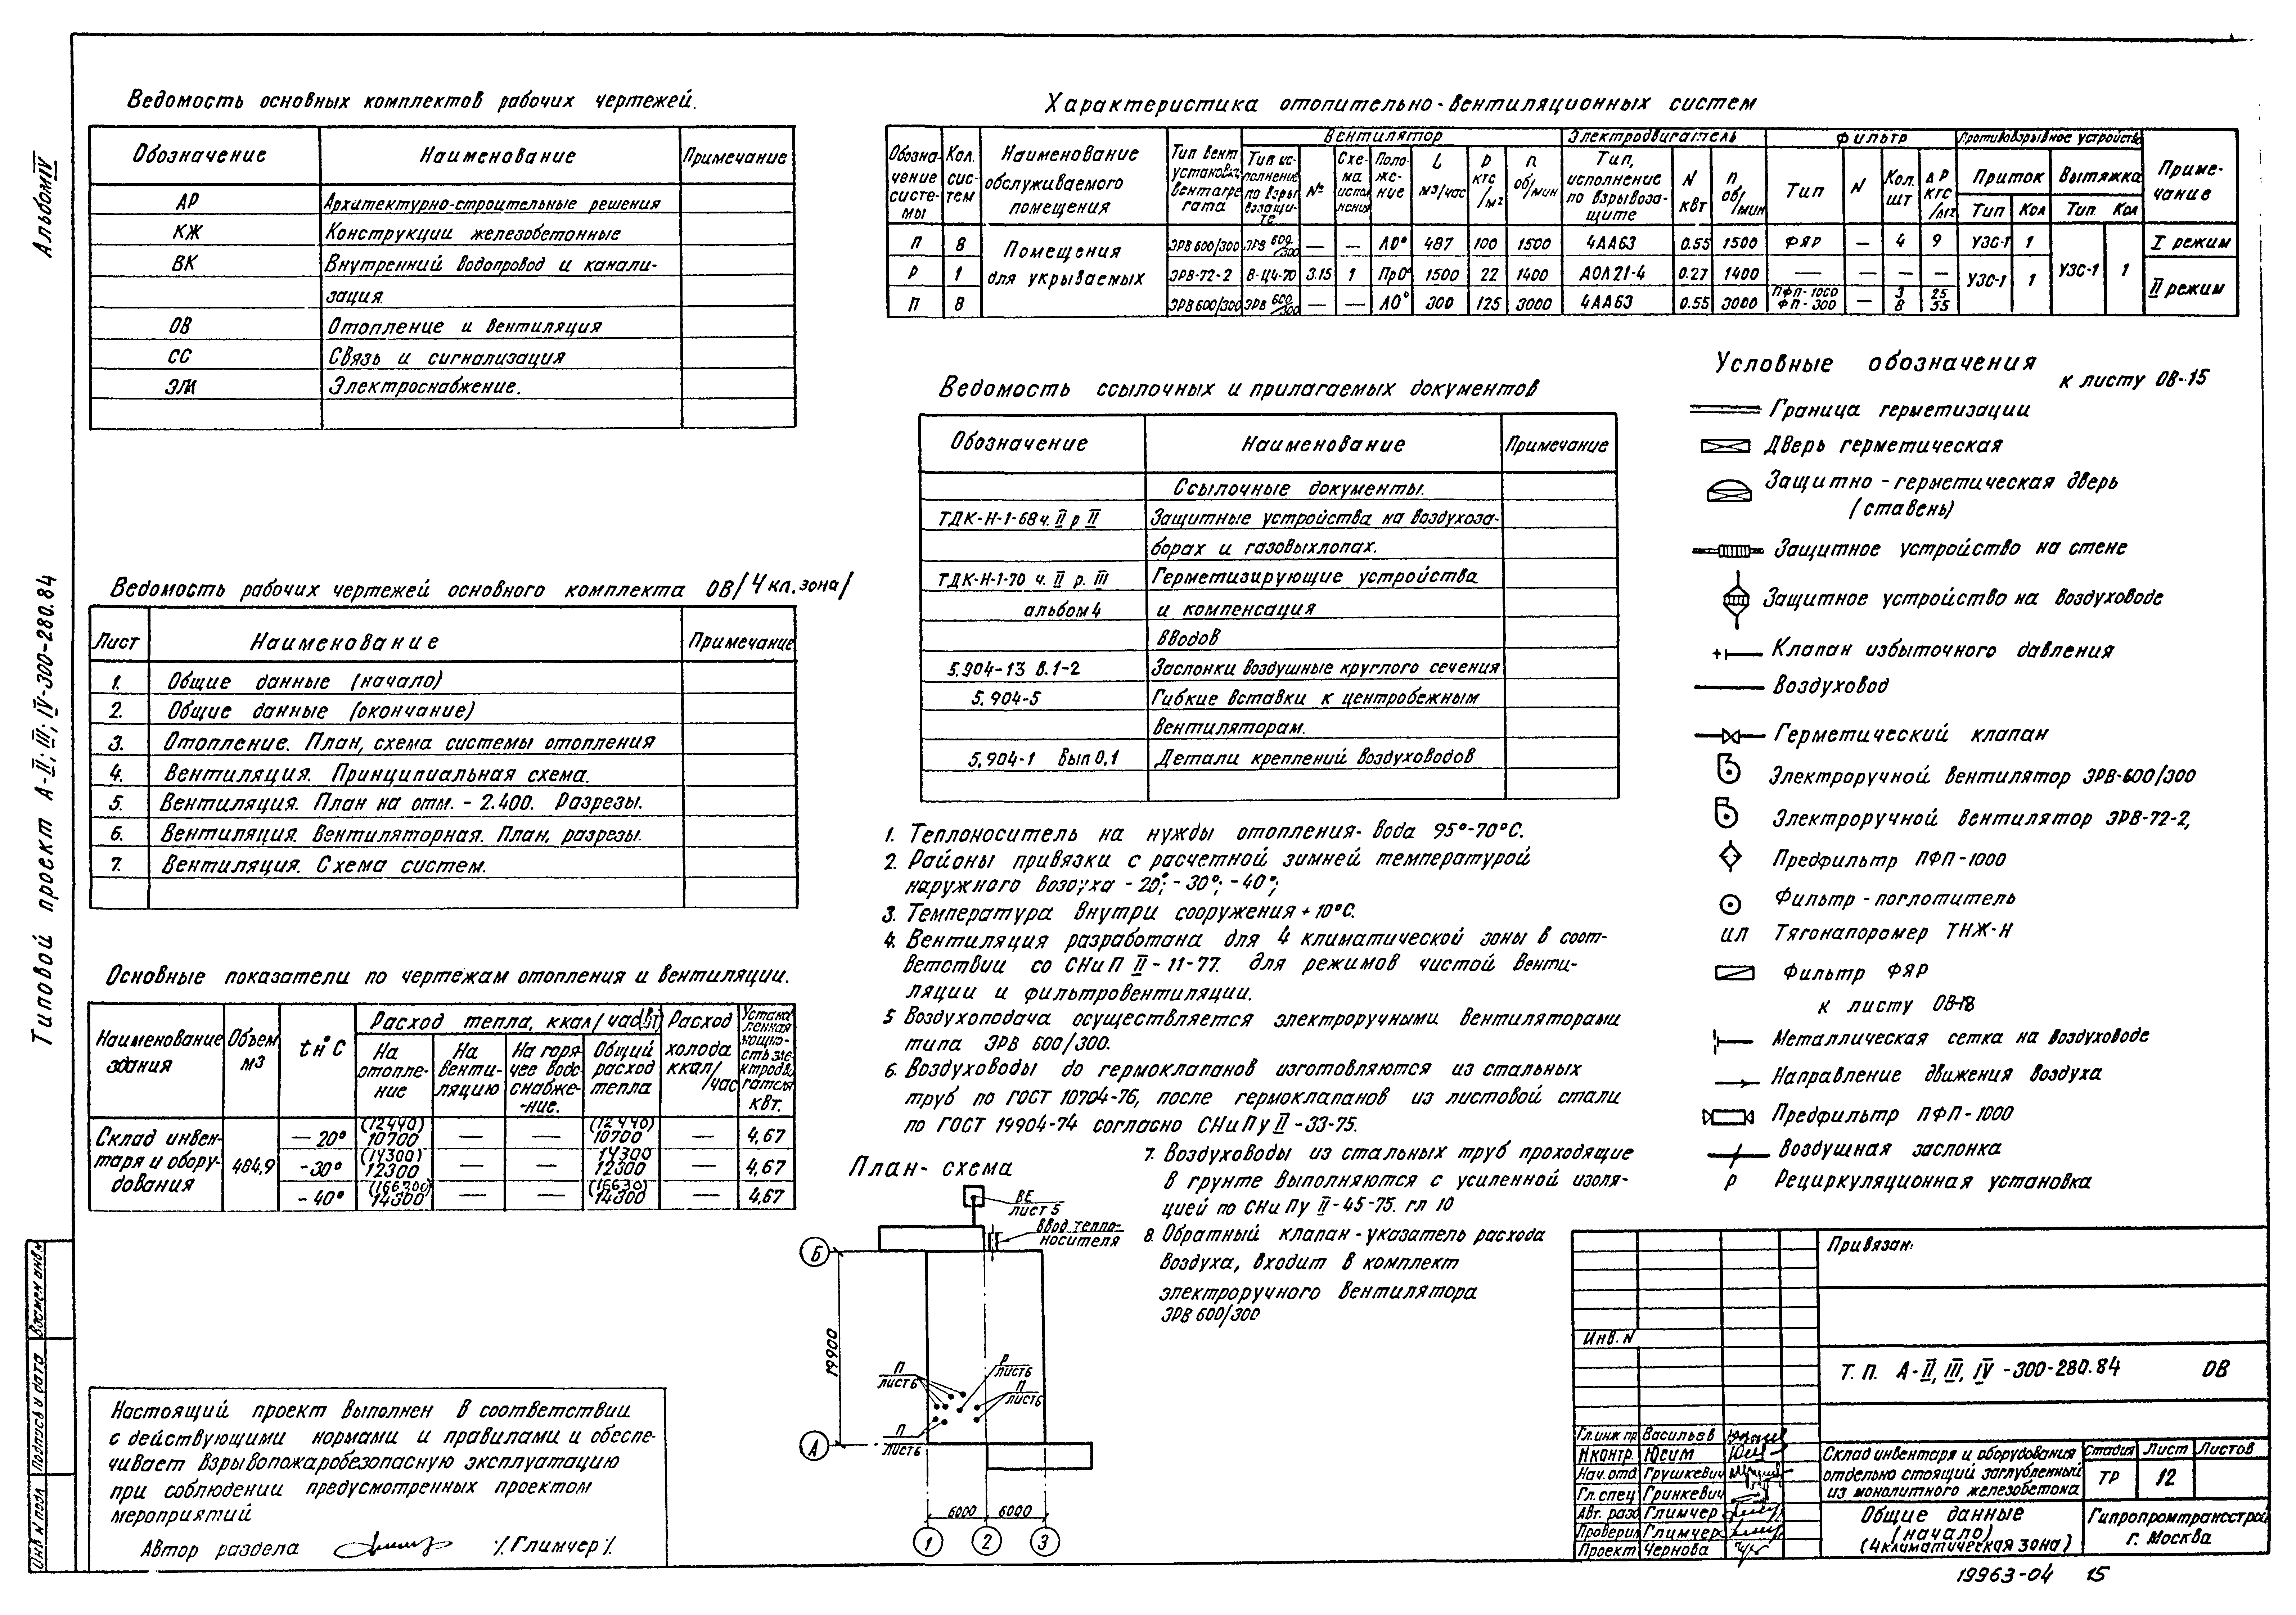 Альбом IV
Типовой проект А-II; III; IV-300-280.84
Ведомость основных комплектов рабочих чертежей.
Обозначение Наименование Примечание
АР Архитектурно-строительные решения
КЖ Конструкции железобетонные
ВК Внутренний водопровод и канали-
зация.
ОВ Отопление и вентиляция
СС Связь и сигнализация
ЭЛ Электроснабжение.
Ведомость рабочих чертежей основного комплекта ОВ/4 кл. зона/
Лист Наименование Примечание
1. Общие данные (начало)
2. Общие данные (окончание)
3. Отопление. План, схема системы отопления
4. Вентиляция. Принципиальная схема.
5. Вентиляция. План на отм. - 2.400. Разрезы.
6. Вентиляция. Вентиляторная. План, разрезы.
7. Вентиляция. Схема систем.
Основные показатели по чертежам отопления и вентиляции.
Наименование здания Объем м3 tн°С Расход тепла, ккал/час (Вт) Расход холода ккал/час Установленная мощность электродвигателя квт.
На отопле-ние На венти-ляцию На горячее водоснабже-ние. Общий расход тепла
Склад инвен-таря и обору-дования 484,9
-20° (12440) 10700 — — (12440) 10700 — 4,67
-30° (14300) 12300 — — 14300 12300 — 4,67
-40° (16630) 14300 — — (16630) 14300 — 4,67
Настоящий проект выполнен в соответствии
с действующими нормами и правилами и обеспе-
чивает взрывопожаробезопасную эксплуатацию
при соблюдении предусмотренных проектом
мероприятий
Автор раздела /Глимчер/.
Характеристика отопительно-вентиляционных систем
Обозна-чение систе-мы Кол. сис-тем Наименование обслуживаемого помещения Тип вент установки вентагре гата Вентилятор Электродвигатель Фильтр Противовзрывное устройство Приме-чание
Тип исполнение по взрывозащите № Схе-ма испол нения Поло-же-ние L м3/час Р кгс/м2 п об/мин Тип, исполнение по взрывоза-щите N квт п об/мин Тип N Кол. шт ΔР кгс/м2 Приток Вытяжка
Тип Кол Тип Кол
П 8 Помещения для укрываемых ЭРВ 600/300 ЭРВ 600/300 — — Л0° 487 100 1500 4АА63 0.55 1500 ФЯР — 4 9 УЗС-1 1 УЗС-1 1 I режим
Р 1 ЭРВ-72-2 В-Ц4-70 3.15 1 Пр0° 1500 22 1400 АОЛ21-4 0.27 1400 — — — — УЗС-1 1 II режим
П 8 ЭРВ 600/300 ЭРВ 600/300 — — Л0° 300 125 3000 4АА63 0.55 3000 ПФП-1000 ФП-300 — 3 8 25 55
Ведомость ссылочных и прилагаемых документов
Обозначение Наименование Примечание
Ссылочные документы.
ТДК-Н-1-68 ч. II р II Защитные устройства на воздухоза-
борах и газовыхлопах.
ТДК-Н-1-70 ч. II р. III Герметизирующие устройства
альбом 4 и компенсация
вводов
5.904-13 в.1-2 Заслонки воздушные круглого сечения
5.904-5 Гибкие вставки к центробежным
вентиляторам.
5.904-1 Вып 0,1 Детали креплений воздуховодов
1. Теплоноситель на нужды отопления - вода 95°-70°С.
2. Районы привязки с расчетной зимней температурой
наружного воздуха -20°; -30°; -40°;
3. Температура внутри сооружения +10°С.
4. Вентиляция разработана для 4 климатической зоны в соот-
ветствии со СНиП II-11-77. для режимов чистой венти-
ляции и фильтровентиляции.
5 Воздухоподача осуществляется электроручными вентиляторами
типа ЭРВ 600/300.
6. Воздуховоды до гермоклапанов изготовляются из стальных
труб по ГОСТ 10704-76, после гермоклапанов из листовой стали
по ГОСТ 19904-74 согласно СНиПу II-33-75.
7. Воздуховоды из стальных труб проходящие
в грунте выполняются с усиленной изоля-
цией по СНиПу II-45-75. гл 10
8. Обратный клапан - указатель расхода
воздуха, входит в комплект
электроручного вентилятора
ЭРВ 600/300
План-схема
ВЕ
лист 5
Ввод тепло-
носителя
Б
19900
П
лист 6
Р
лист 6
П
лист 6
П
лист 6
А
6000 6000
1 2 3
Условные обозначения
к листу ОВ-15
Граница герметизации
Дверь герметическая
Защитно-герметическая дверь
(ставень)
Защитное устройство на стене
Защитное устройство на воздуховоде
Клапан избыточного давления
Воздуховод
Герметический клапан
Электроручной вентилятор ЭРВ-600/300
Электроручной вентилятор ЭРВ-72-2,
Предфильтр ПФП-1000
Фильтр-поглотитель
ИЛ Тягонапоромер ТНЖ-Н
Фильтр ФЯР
к листу ОВ-18
Металлическая сетка на воздуховоде
Направление движения воздуха
Предфильтр ПФП-1000
Воздушная заслонка
Р Рециркуляционная установка
Привязан:
Инв. N
Т. П. А-II, III, IV -300-280.84 ОВ
Гл.инж пр Васильев
Н контр. Юсим
Нач. отд Грушкевич
Гл. спец Гринкевич
Авт. разд Глимчер
Проверил Глимчер
Проект Чернова
Склад инвентаря и оборудования
отдельно стоящий заглубленный
из монолитного железобетона
Стадия Лист Листов
ТР 12
Общие данные
(начало)
(4 климатическая зона)
Гипропромтрансстрой
г. Москва
19963-04 15
Инв N подл. Подпись и дата Взаммен инв.N